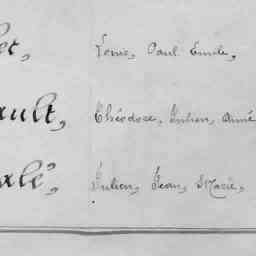 let, Louis, Paul Emile,
ault, Théodore, Julien, Aimé
alé, Julien, Jean, Marie,